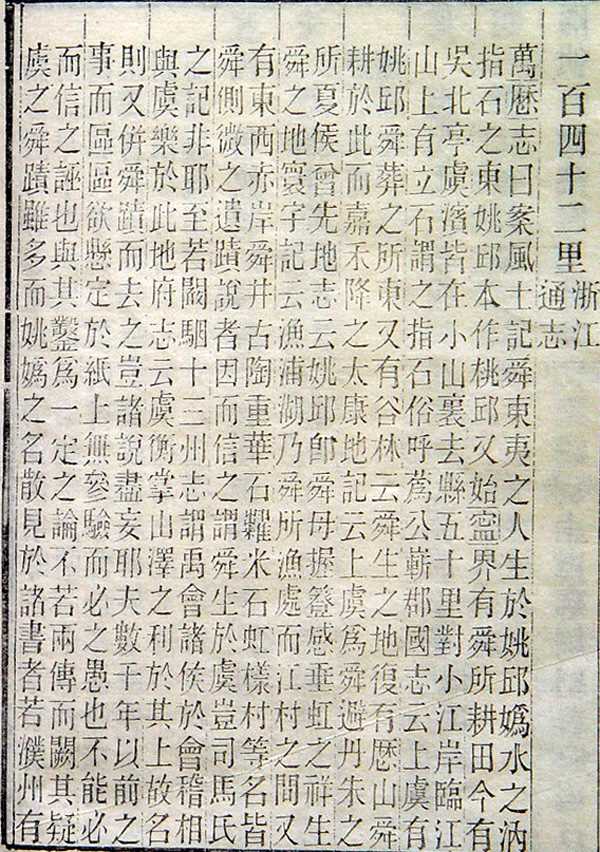 一百四十二里浙江通志
萬歷志曰案風土記舜東夷之人生於姚邱媯水之汭
指石之東姚邱本作桃邱又始寧界有舜所耕田今有
吳北亭虞濱皆在小山裏去縣五十里對小江岸臨江
山上有立石謂之指石俗呼蔿公嶄郡國志云上虞有
姚邱舜葬之所東又有谷林云舜生之地復有歷山舜
耕於此而嘉禾降之太康地記云上虞爲舜避丹朱之
所夏侯曾先地志云姚邱卽舜母握登感垂虹之祥生
舜之地寰宇記云漁浦湖乃舜所漁處而江村之間又
有東西赤岸舜井古陶重華石糶米石虹樣村等名皆
舜側微之遺蹟說者因而信之謂舜生於虞豈司馬氏
之記非耶至若闞駰十三州志謂禹會諸侯於會稽相
與虞樂於此地府志云虞衡掌山澤之利於其上故名
則又併舜蹟而去之豈諸說盡妄耶夫數千年以前之
事而區區欲懸定於紙上無參驗而必之愚也不能必
而信之誣也與其鑿爲一定之論不若兩傳而闕其疑
虞之舜蹟雖多而姚媯之名散見於諸書者若濮州有